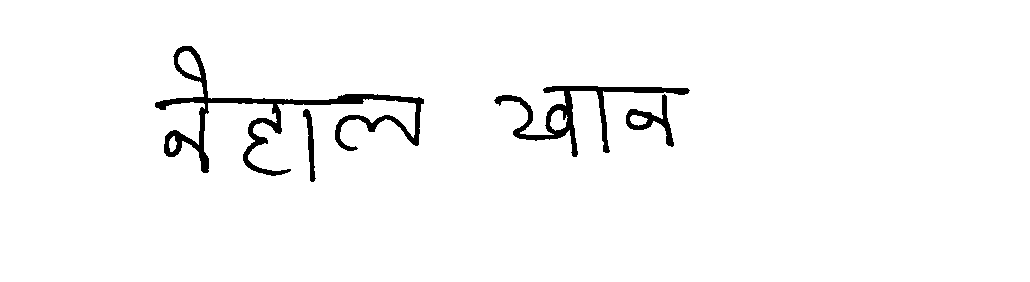 नेहाल खान